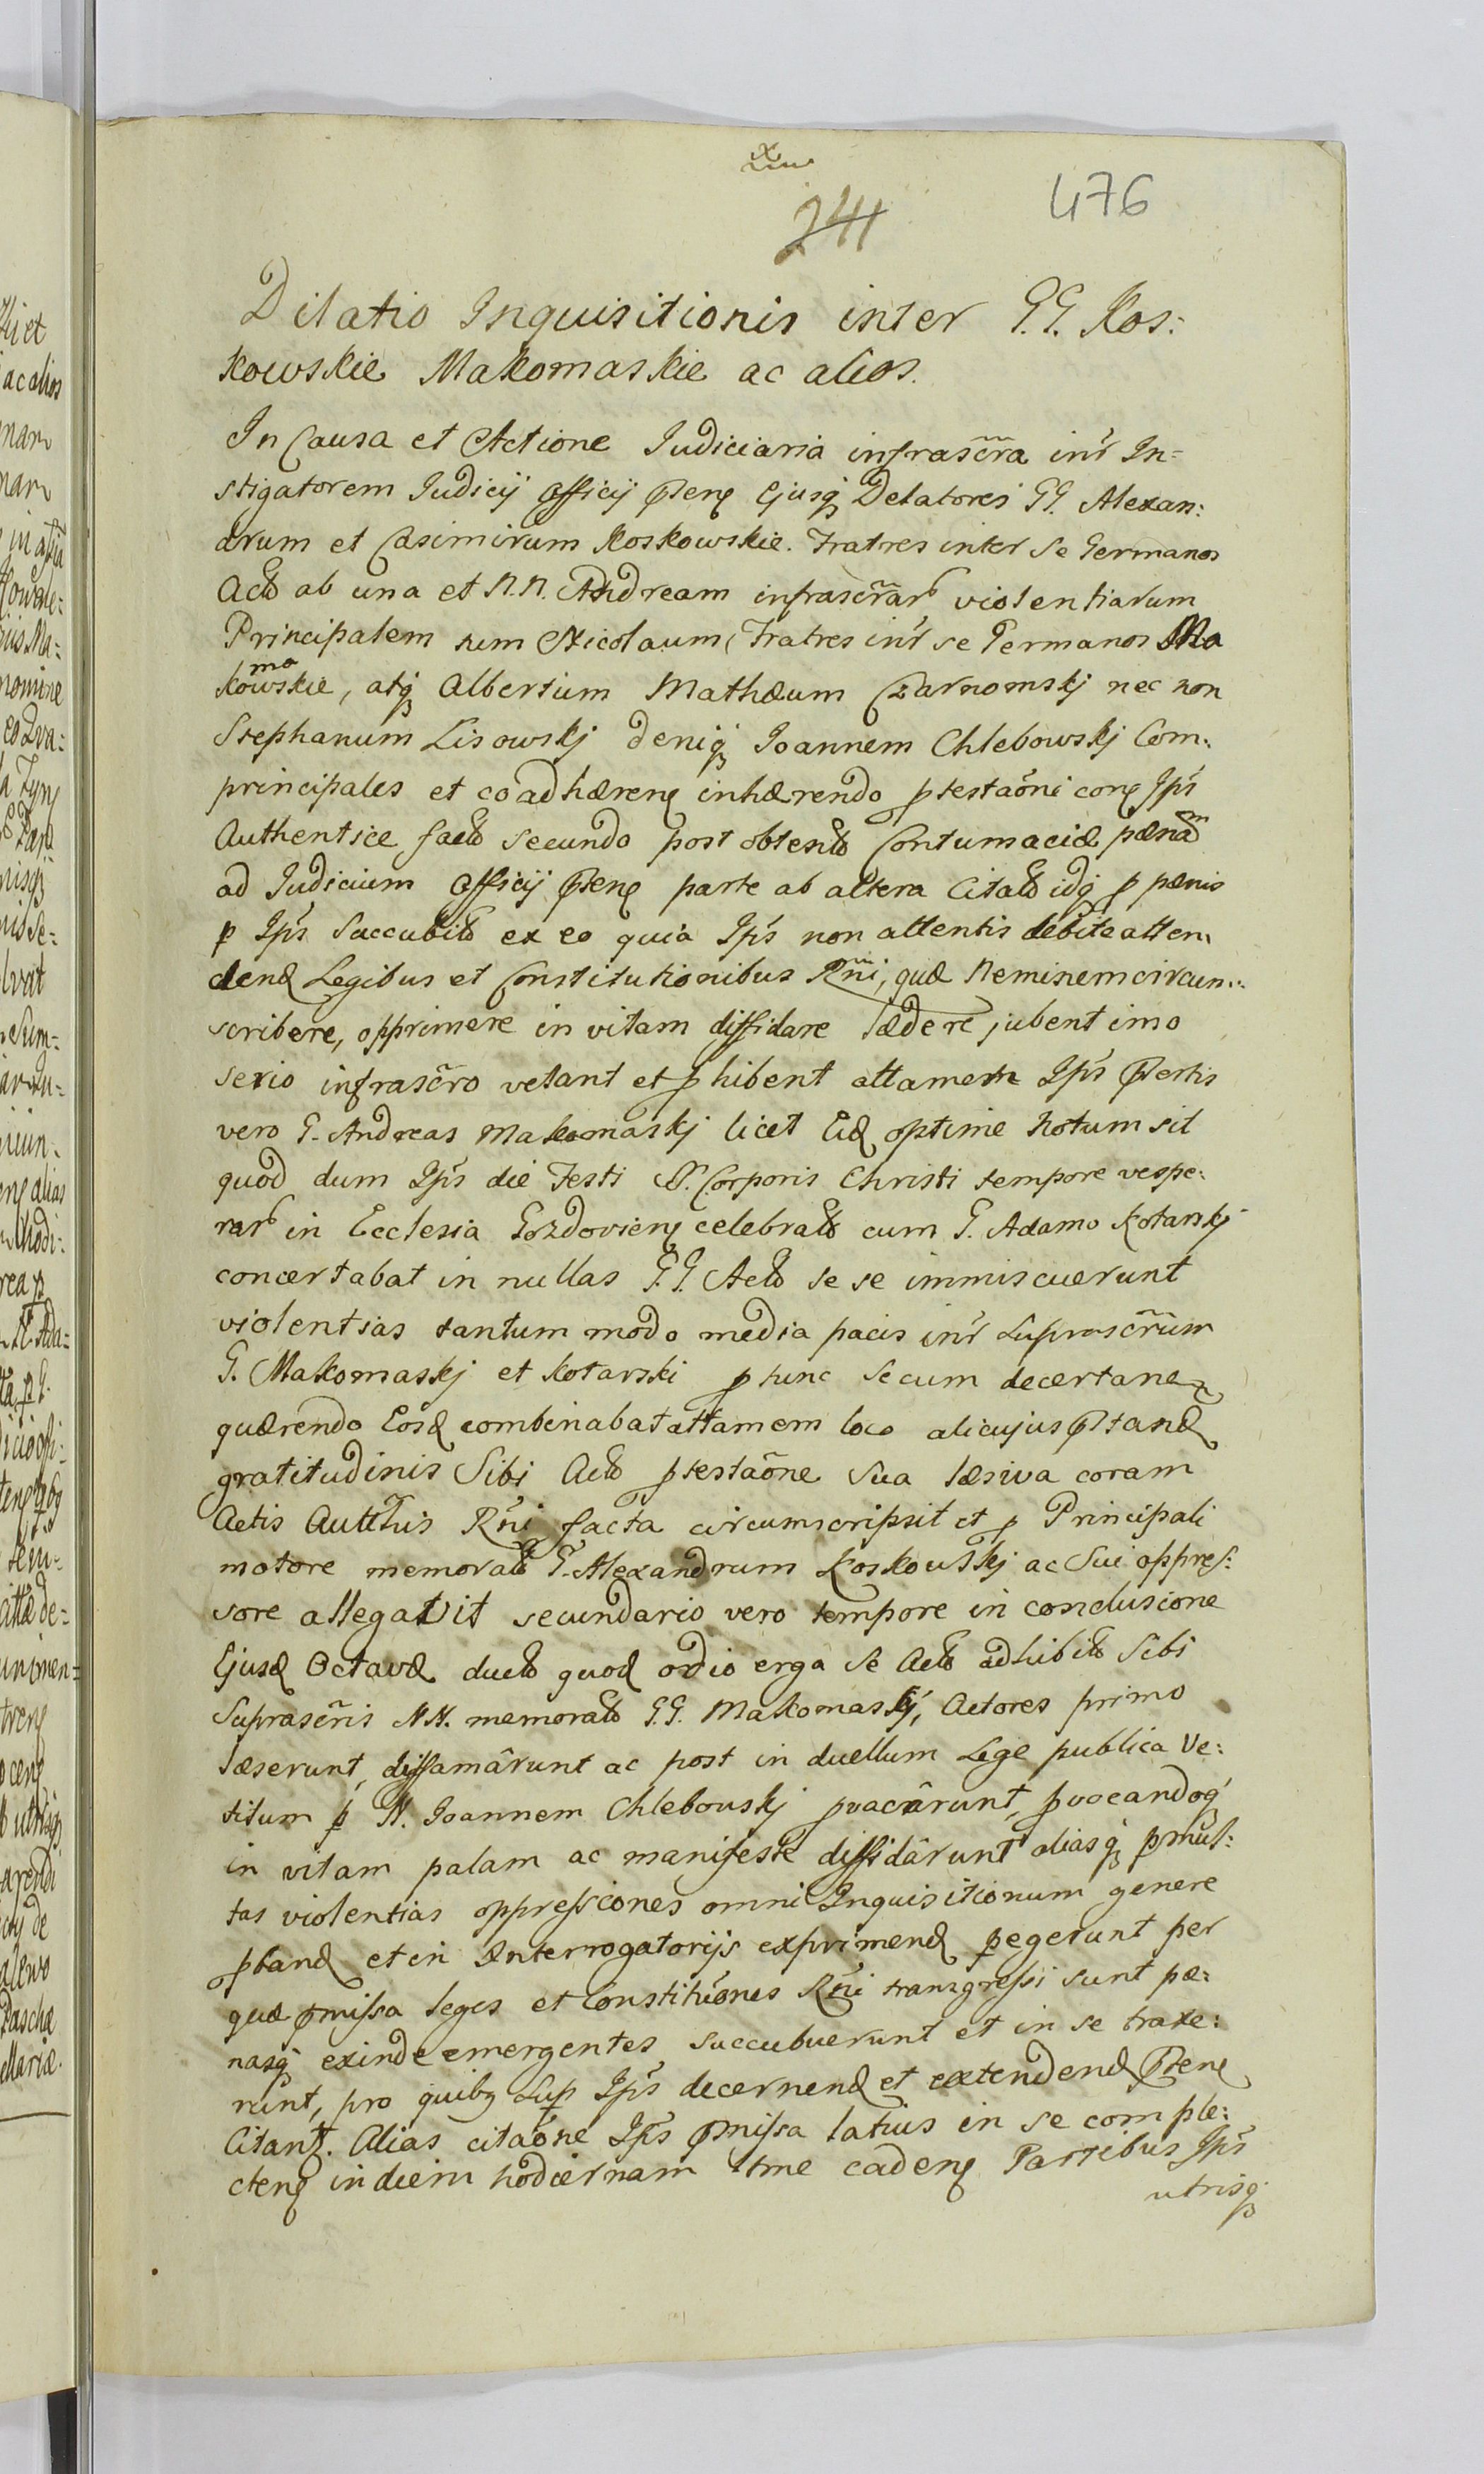 241
476
Dilatio Inquisitionis inter G.G. Kos:
kowskie Makomaskie ac alios.
In Causa et Actione Judiciaria infrascr̃a int̃r In=
stigatorem Judicij Officij Ptenꝭ Ejusqꝫ Delatores GG. Alexan:
drum et Casimirum Koskowskie. Fratres inter se Germanos
Actoꝝ ab una et N.N. Andream infrascr̃arꝫ violentiarum
Principalem tum Nicolaum Fratres int̃r se Germanos Ma
komowskie, atqꝫ Albertum Mathæum Czarnomskj nec non
Stephanum Lisowskj deniqꝫ Joannem Chlebowskj Com:
principales et coadhærenꝭ inhærendo ꝓtestaõni corꝭ Ip̃s
Authentice factæ secundo post obtentꝫ Contumaciæ pænam
ad Judicium Officij Ptenꝭ parte ab altera Citatoꝝ idqꝫ ꝓ pænis
ꝑ Ip̃s Succubitꝫ ex eo quia Ip̃s non attentis debite atten:
dend Legibus et Constitutionibus Rñi, quæ Neminem circum:
scribere, opprimere in vitam diffidare lædere jubent imo
serio infrascr̃o vetant et ꝓhibent attamen Ip̃s Ptertis
vero G. Andreas Makomaskj licet Eid optime notum sit
quod dum Ip̃s die Festi S. Corporis Christi tempore vespe:
rarꝫ in Ecclesia Gozdovienꝭ celebratꝫ cum G. Adamo Kotarskj
concertabat in nullas G.G. Actoꝝ se se immiscuerunt
violentias tantum modo media pacis int̃r Suprascr̃um
G. Makomaskj et Kotarski ꝓ tunc Secum decertanꝭ
quærendo Eosd combinabat attamem loco alicujus Pstand
gratitudinis Sibi Actoꝝ ꝓtestaõne sua læsiva coram
Actis Autthis Rñi facta circumscripsit et ꝓ Principali
motore memoratꝫ G. Alexandrum Koskowskj ac Sui oppres:
sore allegavit secundario vero tempore in conclusione
Ejusd Octavæ ductꝫ quod odio erga se Actoꝝ adhibitꝫ Sibi
Suprascr̃is NN. memoratꝫ G.G. Makomaskj, Actores primo
læserunt, diffamârunt ac post in duellum Lege publica Ve:
titum ꝑ N. Joannem Chlebowskj ꝓvocârunt, ꝓvocandoqꝫ
in vitam palam ac manifeste diffidârunt aliasqꝫ ꝑmul:
tas violentias oppressiones omni Inquisitionum genere
ꝓband et in Interrogatorijs exprimend ꝑegerunt per
quæ Pmissa leges et Constitũones Rñi transgressi sunt pæ:
nasqꝫ exinde emergentes succubuerunt et in se traxe:
runt, pro quibꝫ Sup Ip̃s decernend et extendend Ptenꝭ
Citantꝫ. Alias citaõne Ip̃s Pmissa latius in se comple:
ctenꝭ in diem hodiernam tme cadenꝭ Partibus Ip̃s
utrisqꝫ